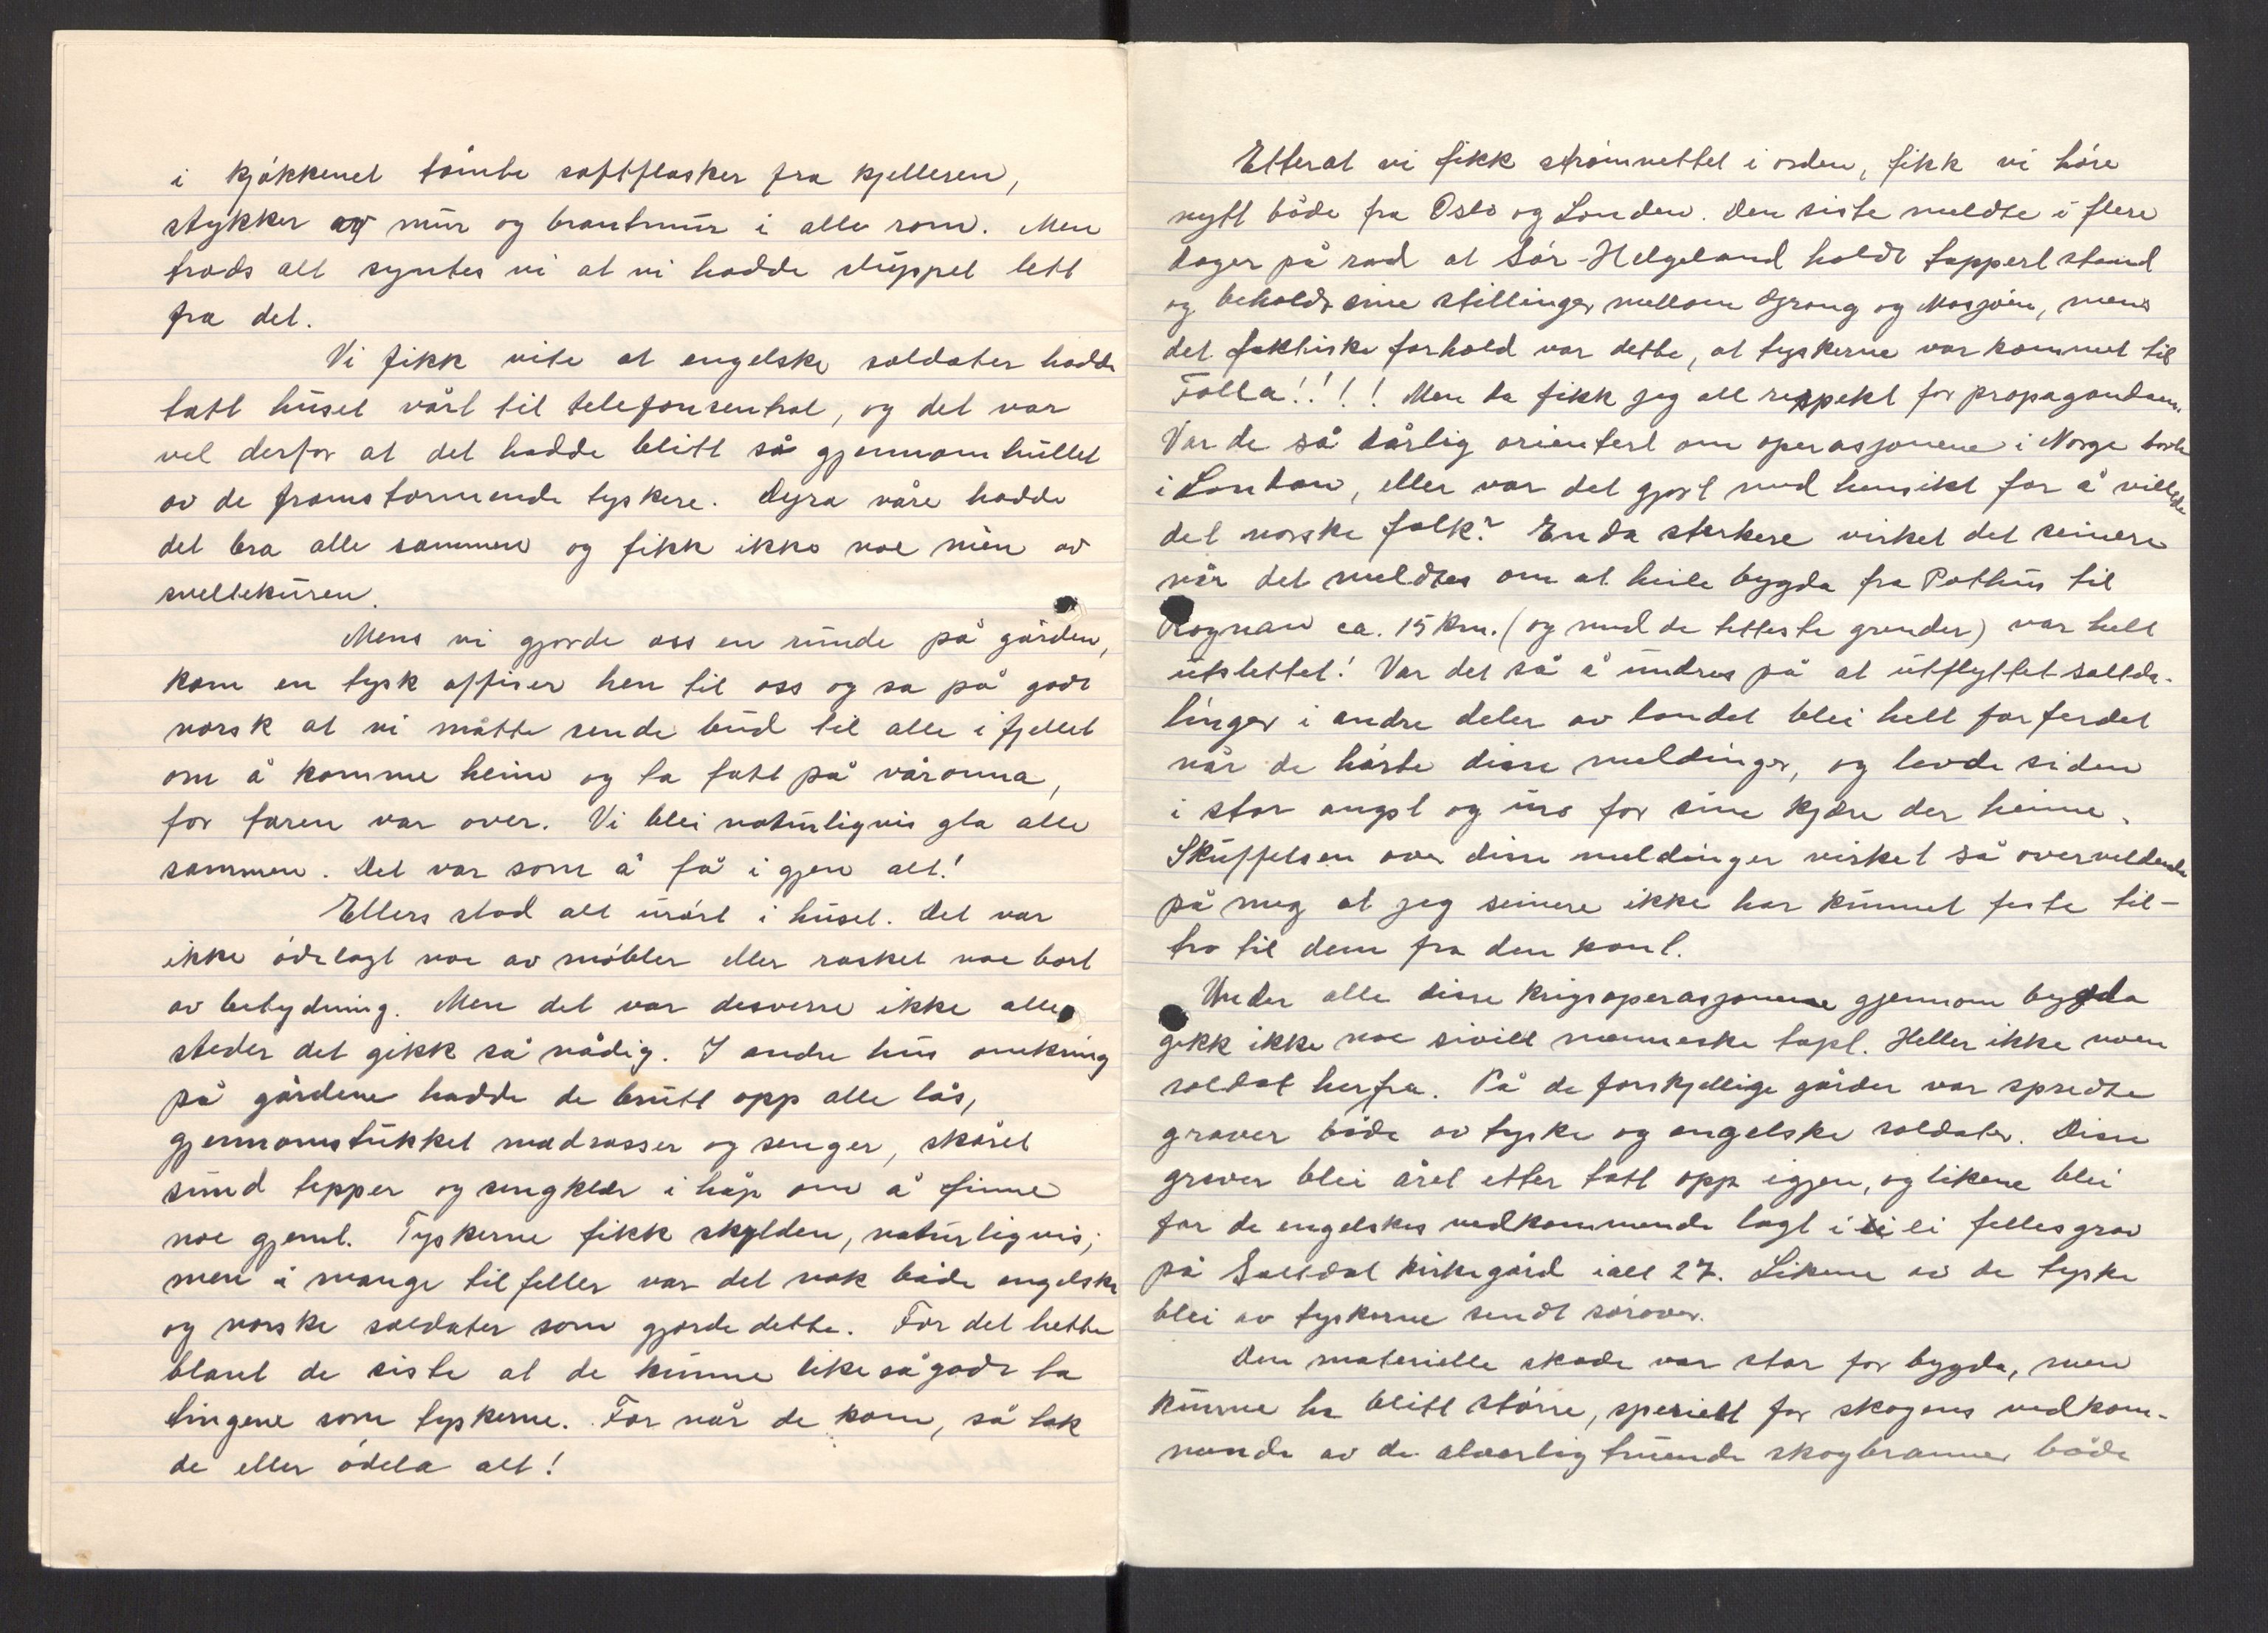 i kjøkkenet tømte saftflasker fra kjelleren,
stykker av mur og brantmur i alle rom. Men
trods alt syntes vi at vi hadde sluppet lett
fra det.
Vi fikk vite at engelske soldater hadde
tatt huset vårt til telefonsentral, og det var
vel derfor at det hadde blitt så gjennomhullet
av de framstormende tyskere. Dyra våre hadde
det bra alle sammen og fikk ikke noe mèn av
sveltekuren.
Mens vi gjorde oss en runde på gården,
kom en tysk offiser hen til oss og sa på godt
norsk at vi måtte sende bud til alle i fjellet
om å komme heim og ta fatt på våronna,
for faren var over. Vi blei naturligvis gla alle
sammen. Det var som å få igjen alt!
Ellers stod alt urørt i huset. Det var
ikke ødelagt noe av møbler eller rasket noe bort
av betydning. Men det var desverre ikke alle
steder det gikk så nådig. I andre hus omkring
på gårdene hadde de brutt opp alle lås,
gjennomstukket madrasser og senger, skåret
sund tepper og sengklær i håp om å finne
noe gjemt. Tyskerne fikk skylden, naturligvis;
men i mange tilfeller var det nok både engelske
og norske soldater som gjorde dette. For det hette
blant de siste at de kunne like så godt ta
tingene som tyskerne. For når de kom, så tok
de eller ødela alt!
Etterat vi fikk strømnettet i orden, fikk vi høre
nytt både fra Oslo og London. Den siste meldte i flere
dager på rad at Sør-Helgeland holdt tappert stand
og beholdt sine stillinger mellom Grong og Mosjøen, mens
det faktiske forhold var dette, at tyskerne var kommet til
Tolla!!!! Men da fikk jeg all respekt for propagandaen.
Var de så dårlig orientert om operasjonene i Norge borte
i London, eller var det gjort med hensikt for å villede
det norske folk? Enda sterkere virket det seinere
når det meldtes om at heile bygda fra Pothus til
Rognan ca. 15 km. (og med de tetteste grender) var helt
utslettet! Var det så å undres på at utflyttet saltda-
linger i andre deler av landet blei helt forferdet
når de hørte disse meldinger, og levde siden
i stor angst og uro for sine kjære der heime.
Skuffelsen over disse meldinger virket så overveldende
på meg at jeg seinere ikke har kunnet feste til-
tro til dem fra den kant.
Under alle disse krigsoperasjonene gjennom bygda
gikk ikke noe sivilt menneske tapt. Heller ikke noen
soldat herfra. På de forskjellige gårder var spredte
graver både av tyske og engelske soldater. Disse
graver blei året etter tatt opp igjen, og likene blei
for de engelskes vedkommende lagt i ei fellesgrav
på Saltdal kirkegård ialt 27. Likene av de tyske
blei av tyskerne sendt sørover.
Den materielle skade var stor for bygda, men
kunne ha blitt større, spesielt for skogens vedkom-
mende av de alvorlig truende skogbranner både